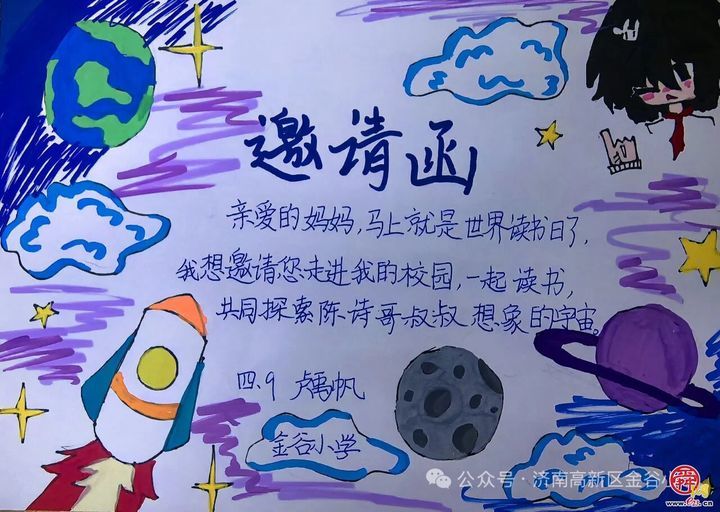 邀请函
亲爱的妈妈,马上就是世界读书日了,
我想邀请您走进我的校园,一起读书,
共同探索陈诗哥叔叔想象的宇宙。
四.9 卢禹帆
金谷小学
公众号·济南高新区金谷小
舜